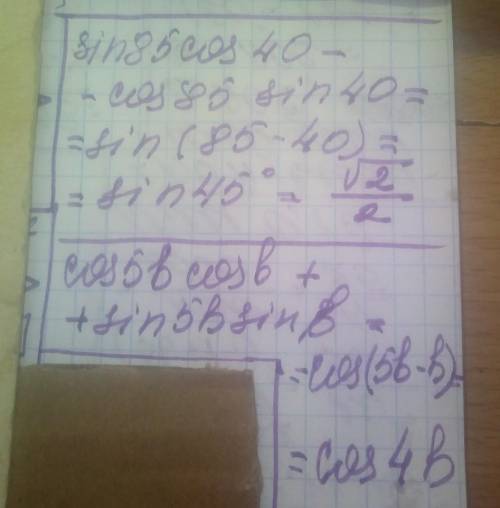 sin85cos40 -
- cos85 sin40 =
= sin(85-40) =
= sin45° = √2/2
cos5b cosb +
+ sin5b sinb =
= cos(5b-b)=
= cos4b